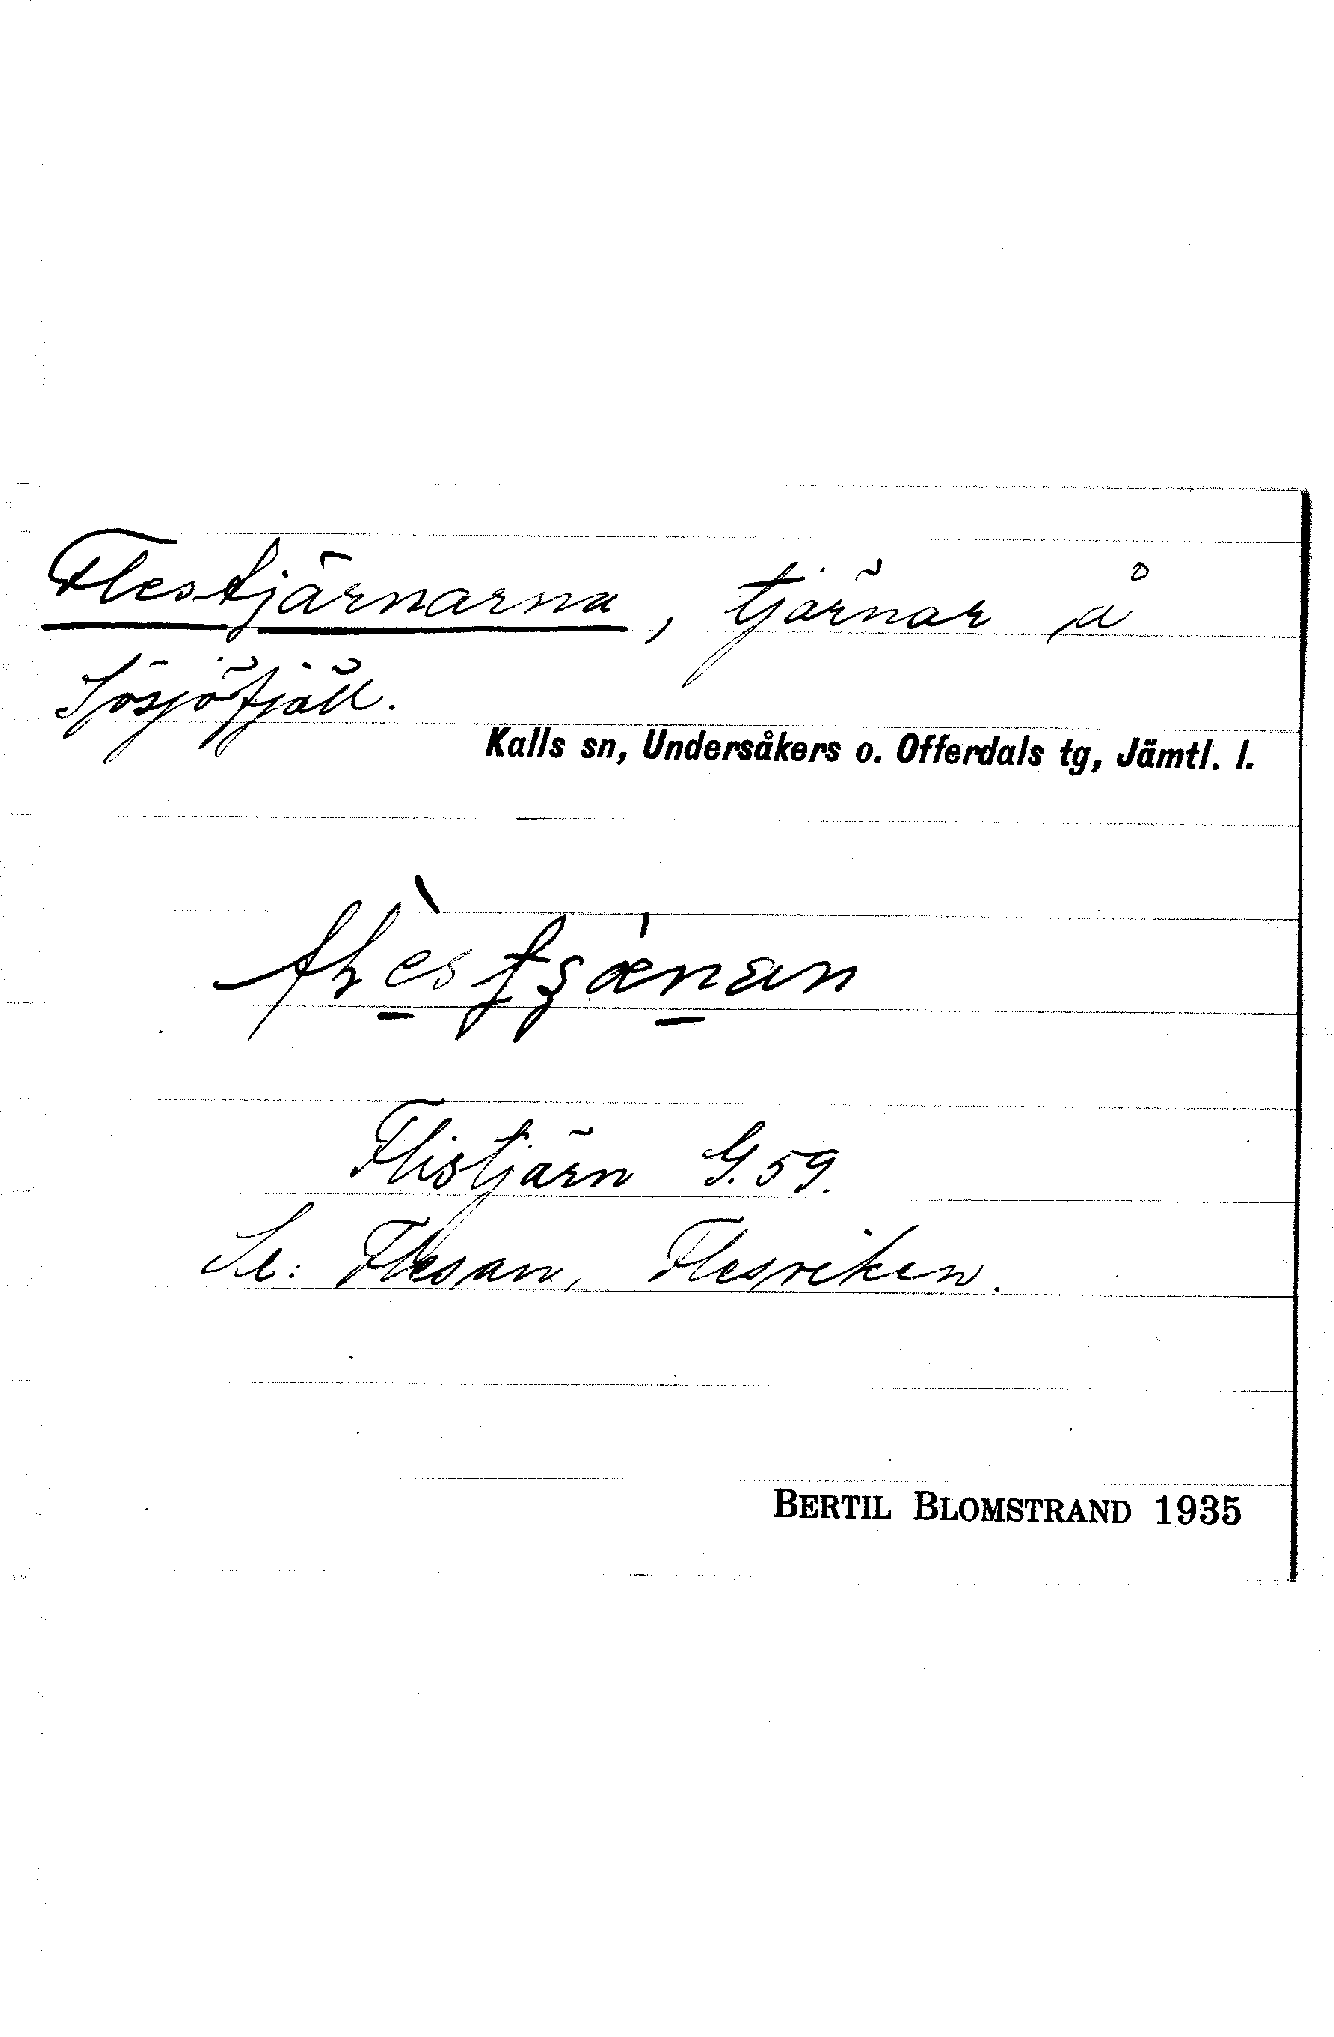 Flestjärnarna, tjärnar å
Sösjöfjäll.
Kalls sn, Undersåkers o. Offerdals tg, Jämtl. l.
Flistjärn G. 59.
Se: Flesan, Flesviken.
BERTIL BLOMSTRAND 1935